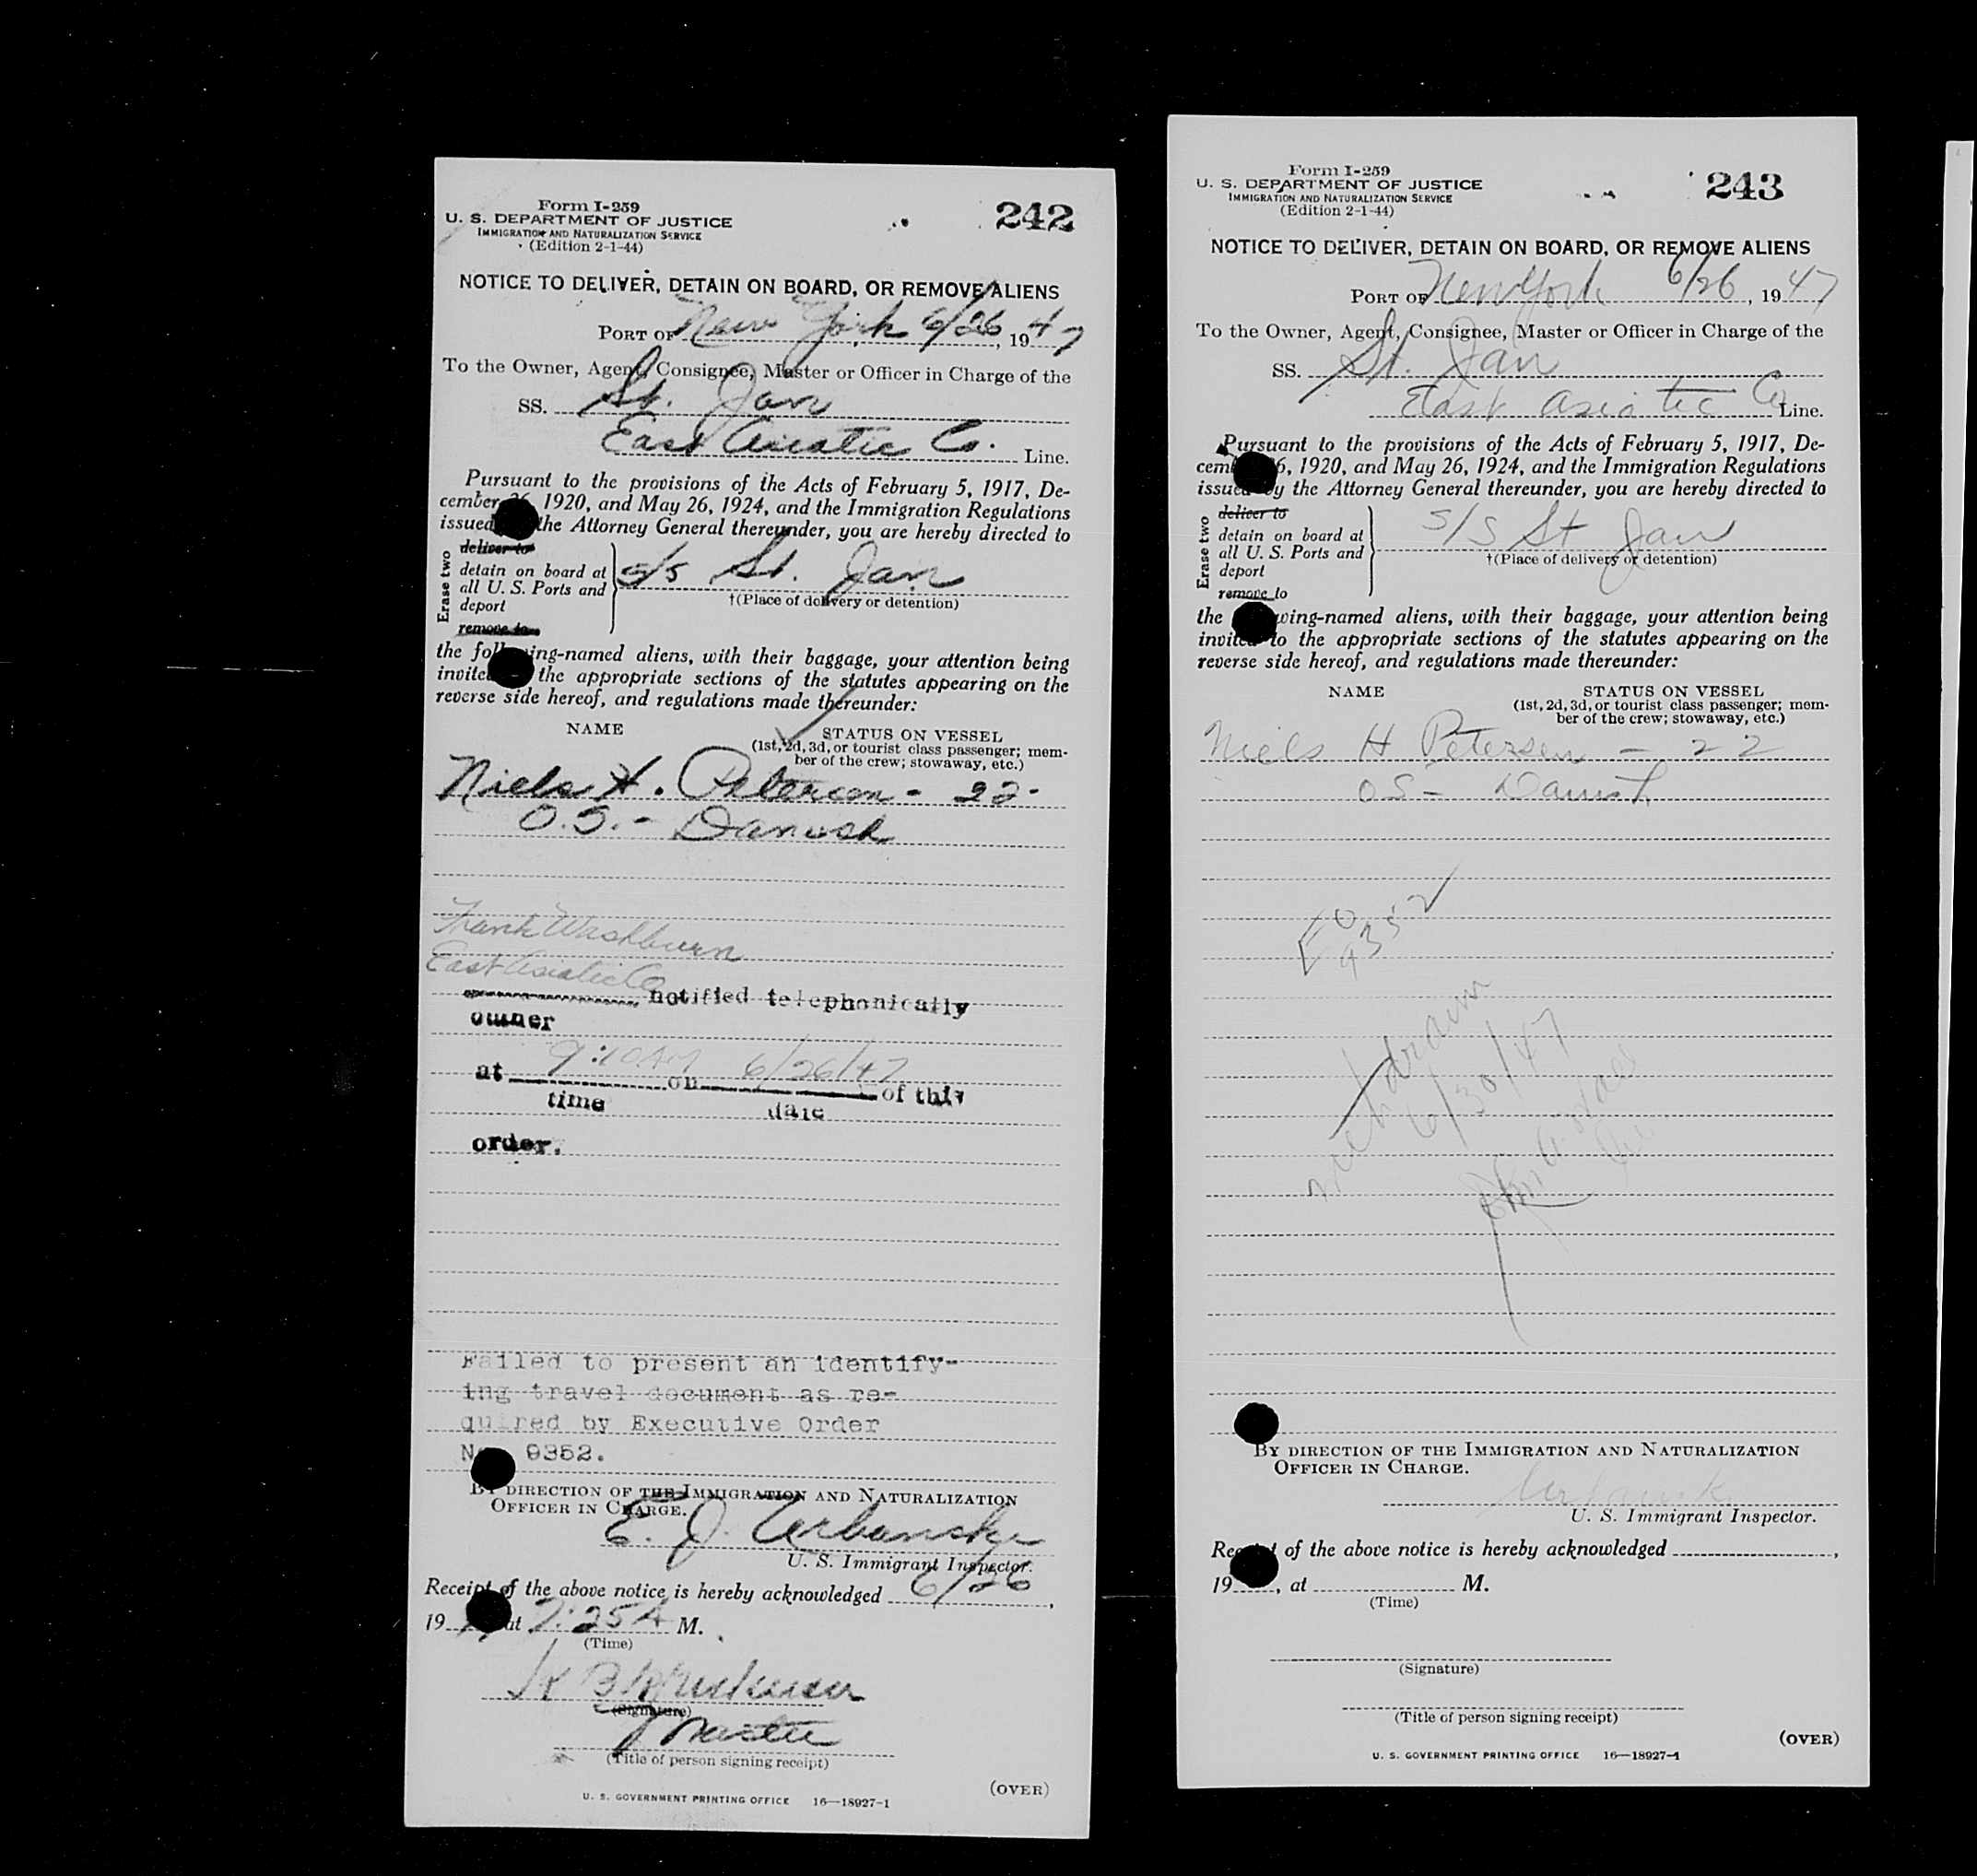 Form I-259
U. S. DEPARTMENT OF JUSTICE
IMMIGRATION AND NATURALIZATION SERVICE
(Edition 2-1-44)
242
NOTICE TO DELIVER, DETAIN ON BOARD, OR REMOVE ALIENS
PORT OF New York 6/26, 1947
To the Owner, Agent, Consignee, Master or Officer in Charge of the
SS. St. Jan
East Asiatic Co. Line.
Pursuant to the provisions of the Acts of February 5, 1917, De-
cember 26, 1920, and May 26, 1924, and the Immigration Regulations
issued the Attorney General thereunder, you are hereby directed to
Erase two
deliver to
detain on board at
all U. S. Ports and
deport
remove to
S/S St. Jan
†(Place of delivery or detention)
the following-named aliens, with their baggage, your attention being
invited the appropriate sections of the statutes appearing on the
reverse side hereof, and regulations made thereunder:
NAME
STATUS ON VESSEL
(1st, 2d, 3d, or tourist class passenger; mem-
ber of the crew; stowaway, etc.)
Niels H. Petersen - 22-
O.S. - Danish
Frank Washburn
East Asiatic Co
notified telephonically
owner
at 9:10 AM on 6/26/47 of this
time date
order.
Failed to present an identify-
ing travel document as re-
quired by Executive Order
No. 9352.
BY DIRECTION OF THE IMMIGRATION AND NATURALIZATION
OFFICER IN CHARGE.
E. J. Urbansky
U. S. Immigrant Inspector.
Receipt of the above notice is hereby acknowledged 6/26,
19 at 7:25 A M.
(Time)
(Signature)
Master
(Title of person signing receipt)
(OVER)
U. S. GOVERNMENT PRINTING OFFICE 16—18927-1
Form I-259
U. S. DEPARTMENT OF JUSTICE
IMMIGRATION AND NATURALIZATION SERVICE
(Edition 2-1-44)
243
NOTICE TO DELIVER, DETAIN ON BOARD, OR REMOVE ALIENS
PORT OF New York 6/26, 1947
To the Owner, Agent, Consignee, Master or Officer in Charge of the
SS. St. Jan
East Asiatic Co Line.
Pursuant to the provisions of the Acts of February 5, 1917, De-
cember 26, 1920, and May 26, 1924, and the Immigration Regulations
issued by the Attorney General thereunder, you are hereby directed to
Erase two
deliver to
detain on board at
all U. S. Ports and
deport
remove to
S/S St Jan
†(Place of delivery or detention)
the following-named aliens, with their baggage, your attention being
invited to the appropriate sections of the statutes appearing on the
reverse side hereof, and regulations made thereunder:
NAME
STATUS ON VESSEL
(1st, 2d, 3d, or tourist class passenger; mem-
ber of the crew; stowaway, etc.)
Niels H Petersen - 22
OS - Danish
EO
9352
withdrawn
6/30/47
BY DIRECTION OF THE IMMIGRATION AND NATURALIZATION
OFFICER IN CHARGE.
U. S. Immigrant Inspector.
Receipt of the above notice is hereby acknowledged ,
19 , at M.
(Time)
(Signature)
(Title of person signing receipt)
(OVER)
U. S. GOVERNMENT PRINTING OFFICE 16—18927-1